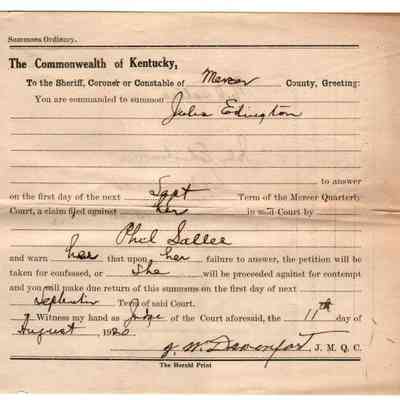 Summons Ordinary.
The Commonwealth of Kentucky,
To the Sheriff, Coroner or Constable of Mercer County, Greeting:
You are commanded to summon
Jules Edington
to answer
on the first day of the next Sept Term of the Mercer Quarterly
Court, a claim filed against her in said Court by
Phil Sallee
and warn her that upon her failure to answer, the petition will be
taken for confessed, or She will be proceeded against for contempt
and you will make due return of this summons on the first day of next
September Term of said Court.
Witness my hand as Judge of the Court aforesaid, the 11th day of
August, 1920
J. W. Davenport, J. M. Q. C.
The Herald Print